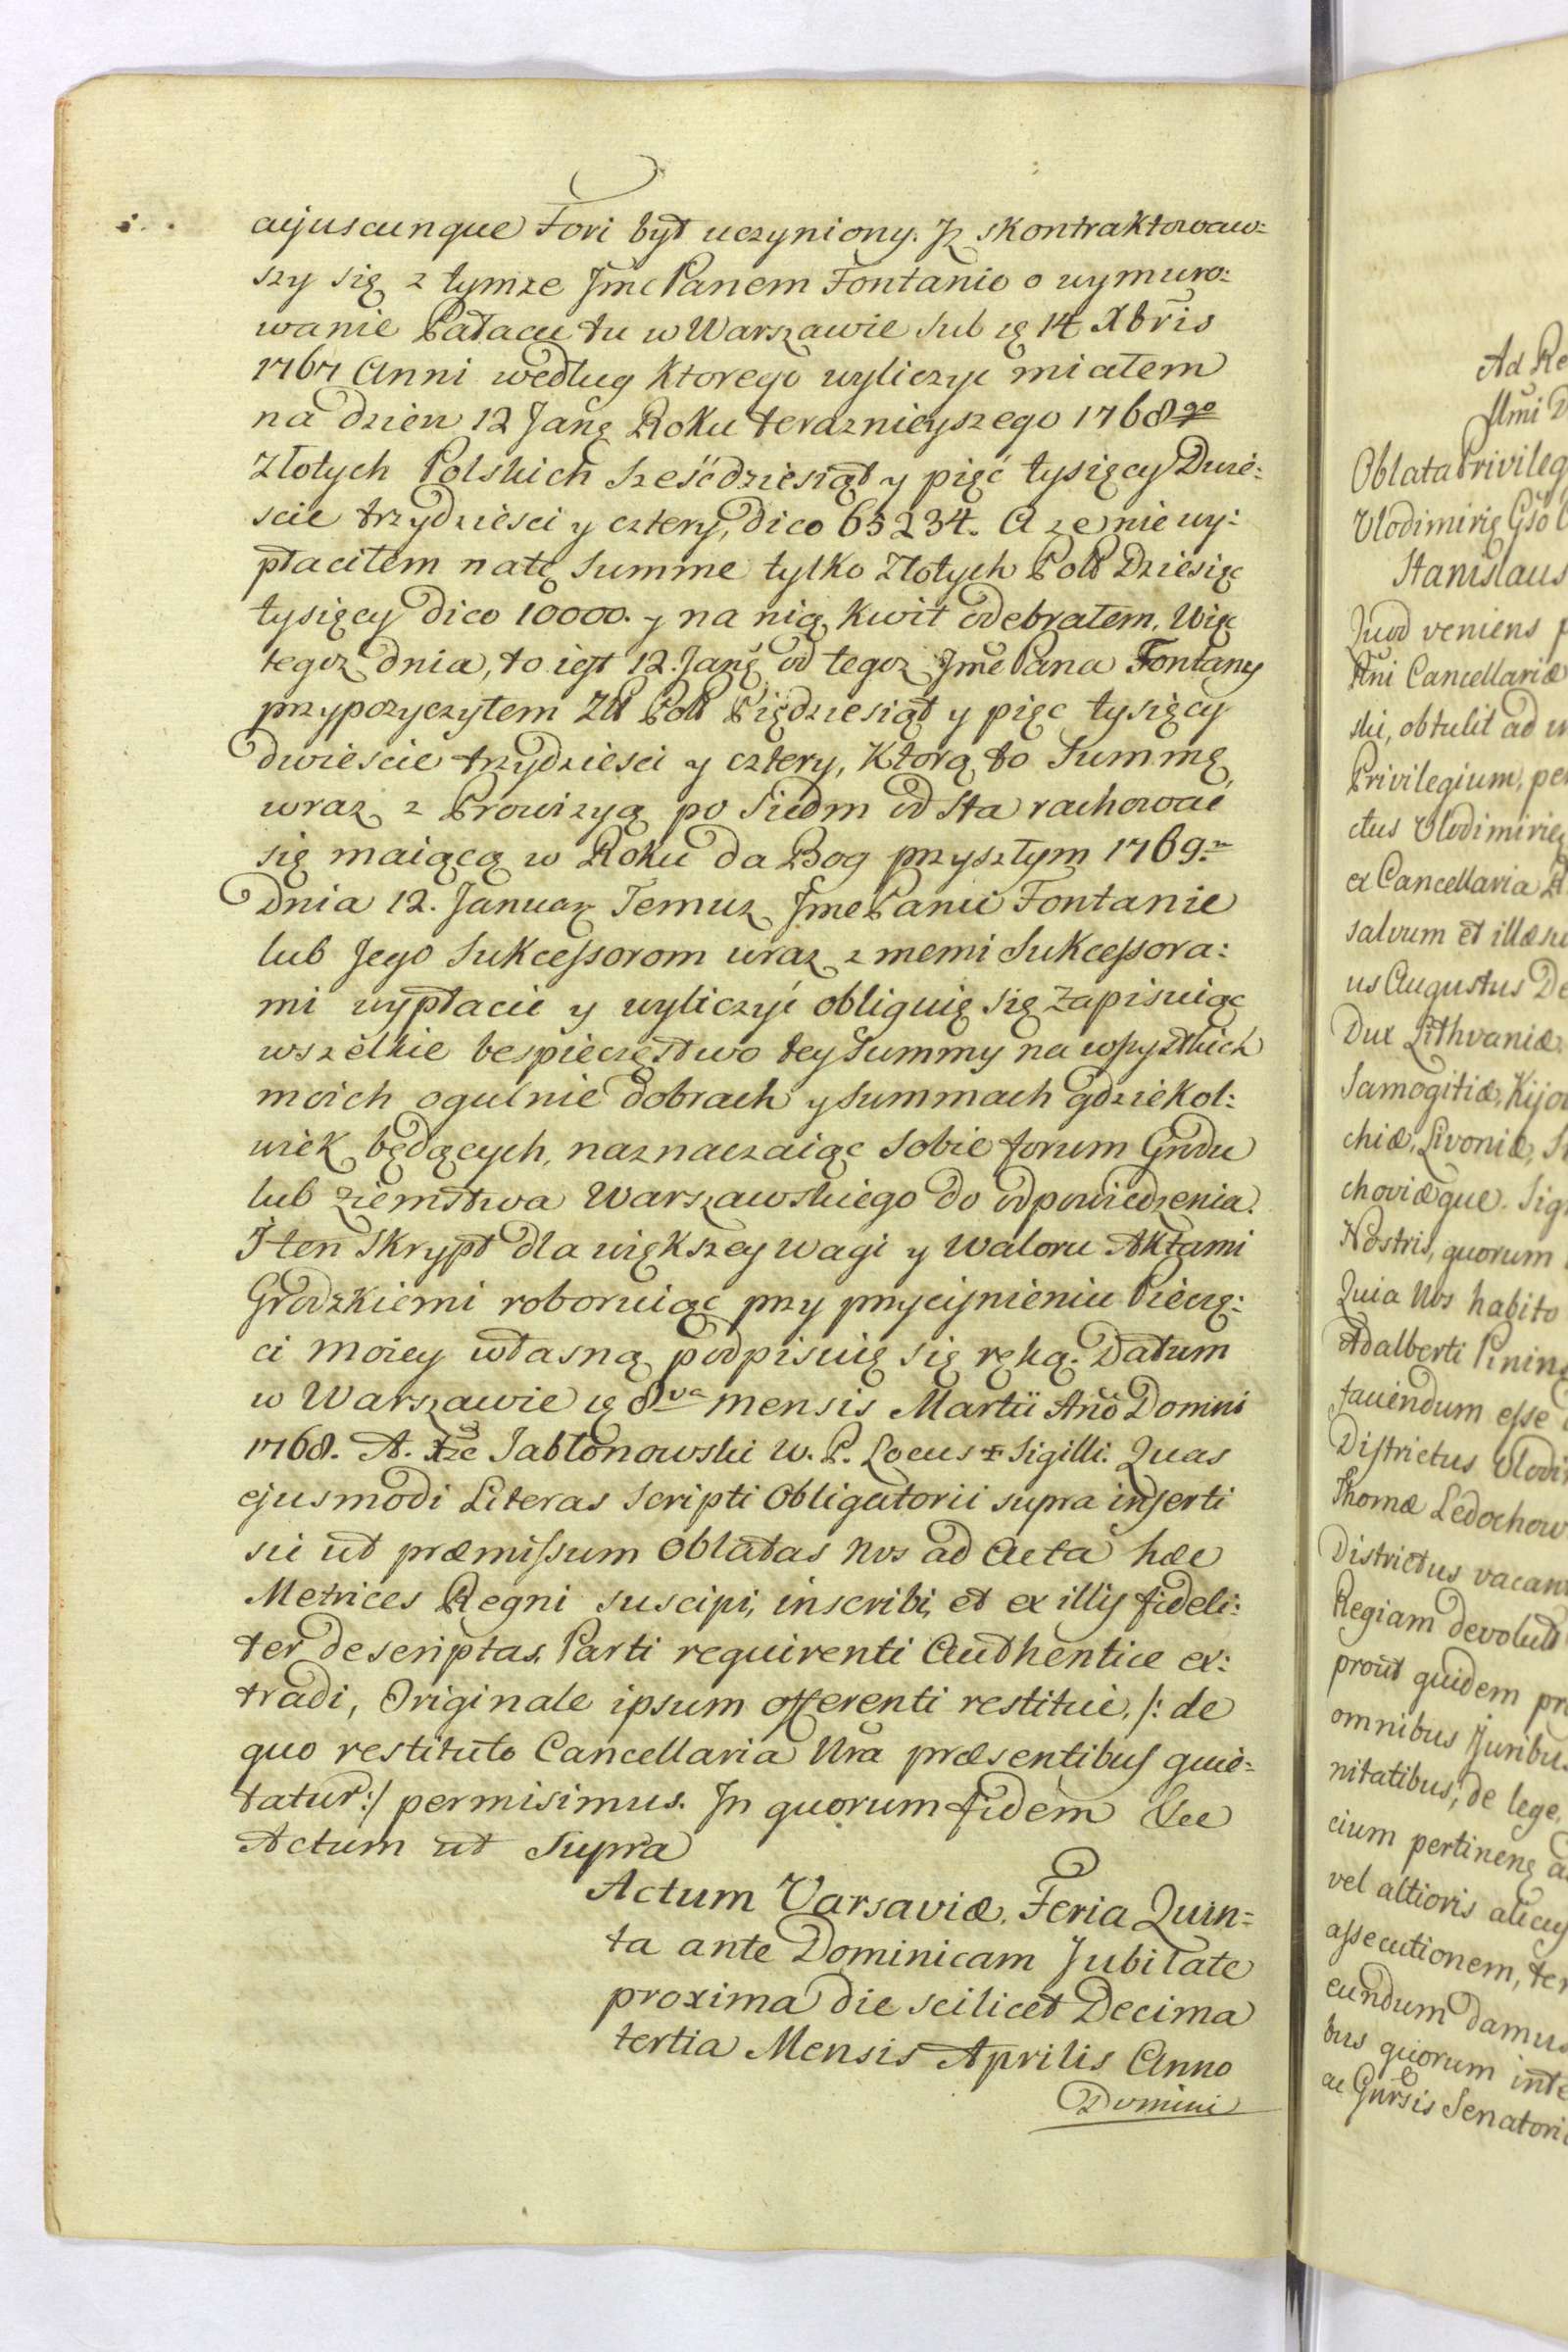 cujuscunque Fori był uczyniony. Jż skontraktowaw=
szy się z tymże Jmć Panem Fontanio o wymuro:
wanie Pałacu tu w Warszawie Sub ię 14 Xbris
1767 Anni według ktorego wyliczyć miałem
na dzien 12 Janę Roku teraznieyszego 1768go
Złotych Polskich sześćdziesiąt y pięć tysięcy Dwie:
scie trzydziesci y cztery, dico 65234. A że nie wy:
płaciłem na tę Summe tylko Złotych Pols Dziesięc
tysięcy dico 10000. y na nią kwit odebrałem. Więc
tegoż dnia, to iest 12. Janę od tegoż Jmć Pana Fontany
przypozyczyłem Zll Polł Pięćdziesiąt y pięc tysięcy
dwieście trzydziesci y cztery, Ktorą to Summę
wraz z Prowizyą po Siedm od Sta rachować
się maiącą w Roku da Bog przyszłym 1769.
Dnia 12. January Temuż Jmć Panu Fontanie
lub Jego Sukcessorom wraz z memi Sukcessora:
mi wypłacić y wyliczyć obliguię się Zapisuiąc
wszelkie bespieczęstwo tey Summy na wszystkich
moich ogulnie dobrach y Summach gdziekol:
wiek będących, naznaczaiąc Sobie forum Grodu
lub ziemstwa Warszawskiego do odpowiedzenia.
J ten Skrypt dla większey wagi y waloru Aktami
Grodzkiemi roboruiąc przy przycisnieniu Pieczę:
ci moiey własną podpisuię się ręką. Datum
w Warszawie ię 8va mensis Martii Año Domini
1768. A. Xże Jabłonowski W. P. Locus + Sigilli. Quas
ejusmodi Literas Scripti Obligatorii supra inserti
sic ut præmissum Oblatas Nos ad Acta hæc
Metrices Regni suscipi, inscribi, et ex illis fideli:
ter descriptas, Parti requirenti Authentice ex:
tradi, Originale ipsum offerenti restitui, /: de
quo restituto Cancellaria Nra præsentibus quie=
tatur :/ permisimus. In quorum fidem &ee
Actum ut Supra
Actum Varsaviæ, Feria Quin=
ta ante Dominicam Jubilate
proxima die scilicet Decima
tertia Mensis Aprilis Anno
Domini
Ad Re
Oblata Privileg
Vlodimirię Gsó
Stanislaus
Quod veniens p
Rñi Cancellariæ
ski, obtulit ad
Privilegium, per
ctus Vlodimirię
ex Cancellaria
salvum et illæsu
us Augustus De
Dux Lithvaniæ
Samogitiæ, Kijov
chiæ, Livoniæ, S
choviæque. Sig
Nostris, quorum
Quia Nos habito
Adalberti Pining
faciendum esse
Districtus Vlodi
Thomæ Ledochow
Districtus vacan
Regiam devolut
prout quidem pr
omnibus Juribu
nitatibus, de lege,
cium pertinenę a
vel altioris alicuj
assecutionem, te
eundum damus
bus quorum inte
ac Gnrsis Senatori